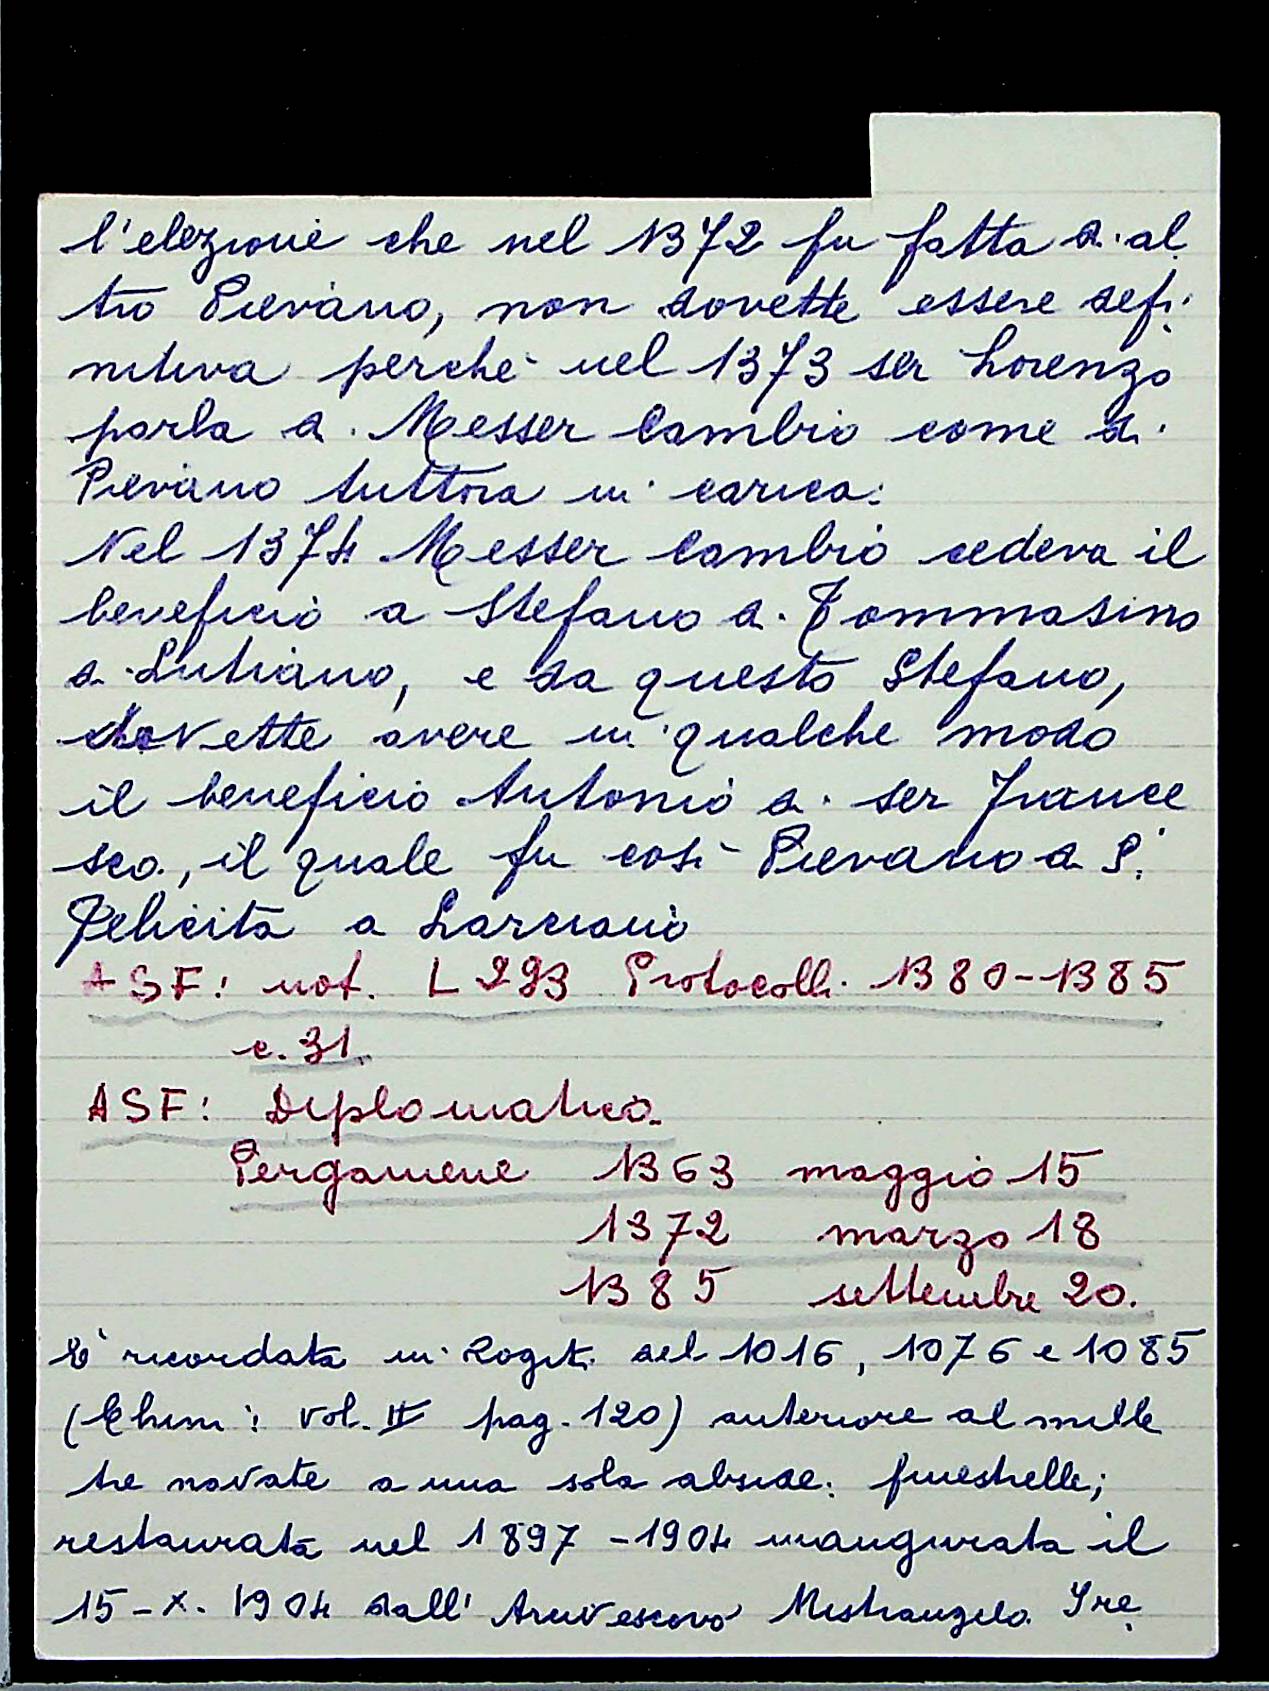 l'elezione che nel 1372 fu fatta di al
tro Pievano, non dovette essere defi
nitiva perchè nel 1373 ser Lorenzo
parla di Messer Cambio come di
Pievano tuttora in carica.
Nel 1374 Messer Cambio cedeva il
beneficio a Stefano di Tommasino
di Lutiano, e da questo Stefano,
dovette avere in qualche modo
il beneficio Antonio di ser France
sco, il quale fu così Pievano di S.
Felicita a Larciano
ASF: not. L 293 Protocolli 1380-1385
c. 31.
ASF: Diplomatico.
Pergamene 1363 maggio 15
1372 marzo 18
1385 settembre 20.
E' ricordata in Rogiti del 1016, 1076 e 1085
(Chini: vol. II pag. 120) anteriore al mille
tre navate a una sola abside: finestrelle;
restaurata nel 1897-1904 inaugurata il
15-X-1904 dall'Arcivescovo Mistrangelo. Tre